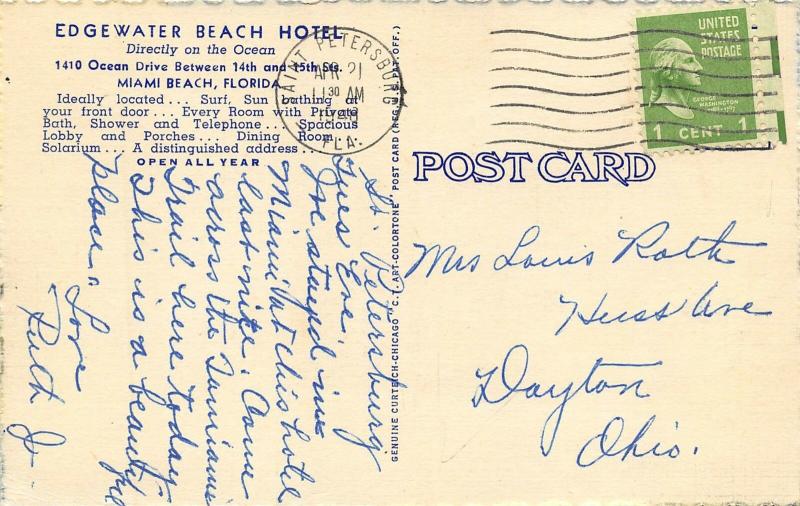 EDGEWATER BEACH HOTEL
Directly on the Ocean
1410 Ocean Drive Between 14th and 15th Sts.
MIAMI BEACH, FLORIDA
Ideally located... Surf, Sun bathing at
your front door... Every Room with Private
Bath, Shower and Telephone... Spacious
Lobby and Porches... Dining Room...
Solarium... A distinguished address...
OPEN ALL YEAR
SAINT PETERSBURG
APR 21
11 30 AM
FLA.
UNITED
STATES
POSTAGE
GEORGE
WASHINGTON
1 CENT 1
POST CARD
GENUINE CURTEICH-CHICAGO "C.T. ART-COLORTONE" POST CARD (REG. U.S. PAT. OFF.)
St. Petersburg
Tues Eve.
We stayed in
Miami at this hotel
last nite. Came
across the Tamiami
Trail here today
This is a beautiful
place.
Love
Ruth J.
Mrs Louis Roth
Huss Ave
Dayton
Ohio.